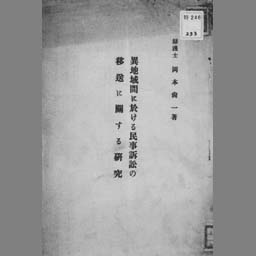 辯護士 岡本尙一著
異地域間に於ける民事訴訟の
移送に關する硏究